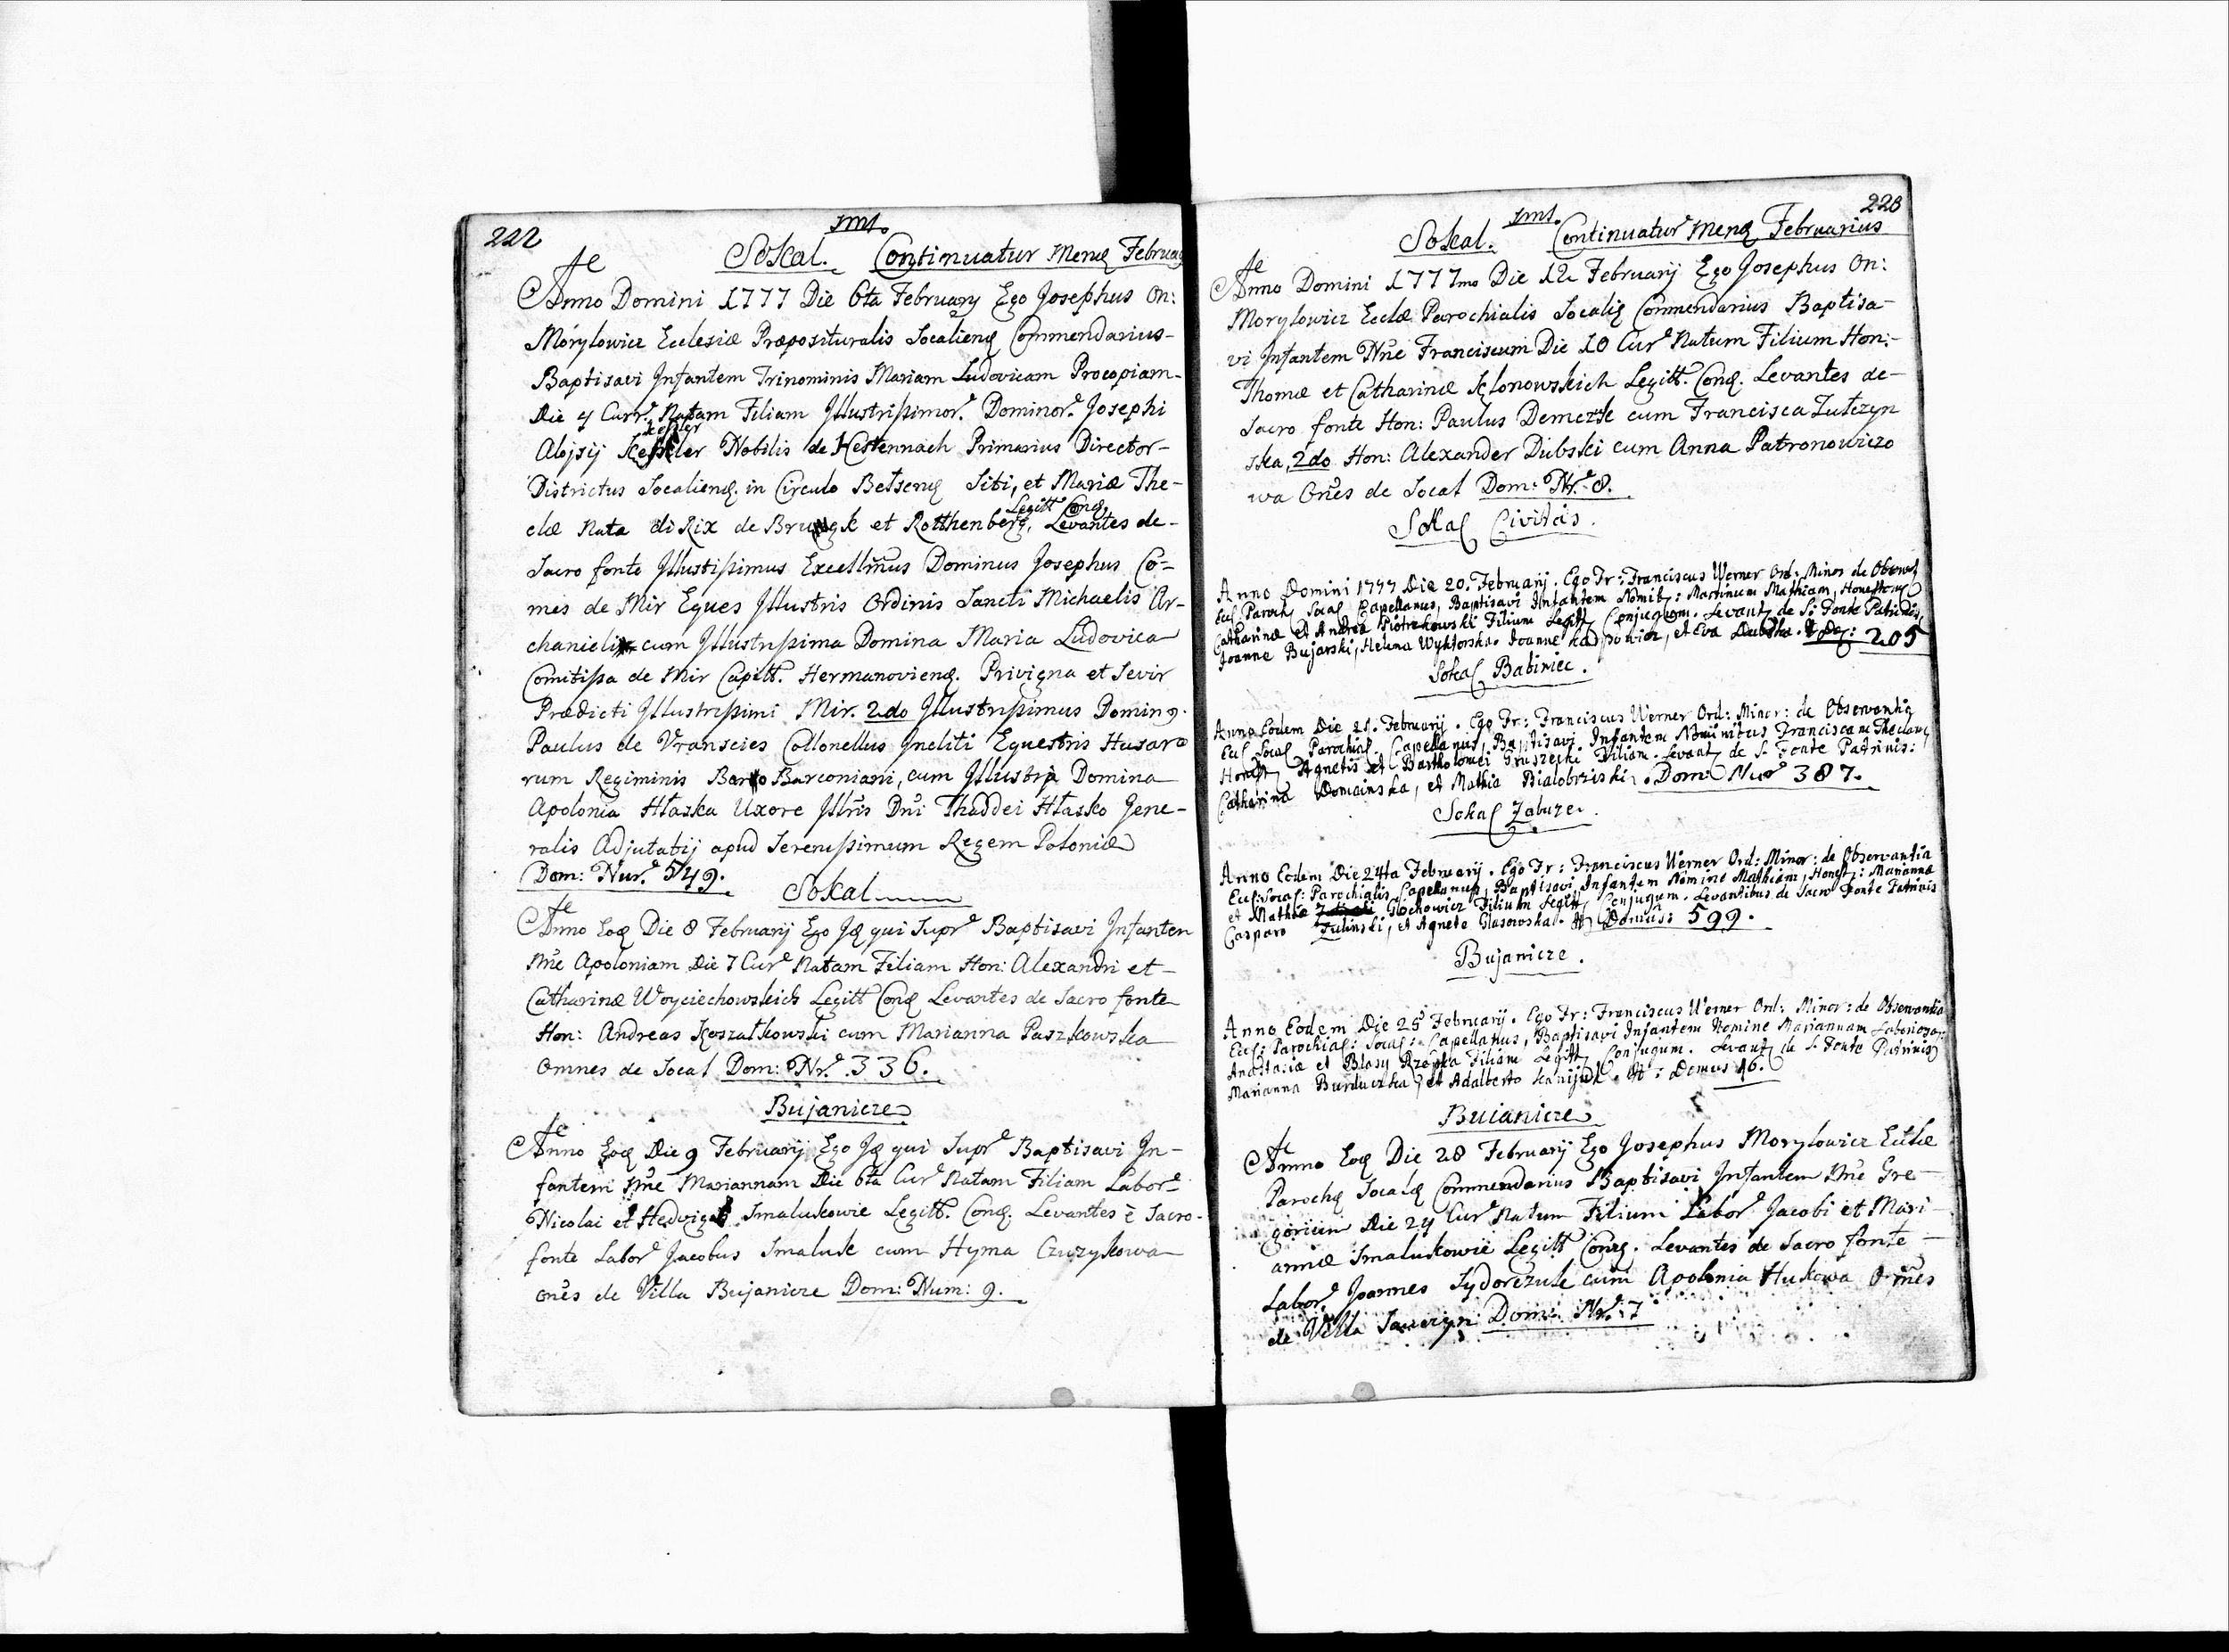 222
Sokal. Continuatur Menς Februa
Anno Domini 1777 Die 6ta February Ego Josephus On:
Morylowicz Ecclesiæ Præposituralis Socalienς Commendarius-
Baptisavi Infantem Trinominis Mariam Ludovicam Procopiam-
Die 4 Curr. Natam Filiam Jllustrissimor. Dominor. Josephi
Alojsij Nobilis de Kestennach Primarius Director-
Districtus Socalienς. in Circulo Belsenς Siti, et Mariæ The-
Legitt Conς.
clæ Nata di Rix de et Rotthenberg, Levantes de-
Sacro fonte Jllustissimus Excellm̃us Dominus Josephus Co-
mes de Mir Eques Jllustris Ordinis Sancti Michaelis Ar-
chanieli cum Jllustrissima Domina Maria Ludovica
Comitissa de Mir Capitt. Hermanovienς. Privigna et Sevir
Prædicti Jllustrissimi Mir. 2do Jllustrissimus Domin9.
Paulus de Vranscies Collonellus Jncliti Equestris Husaro
rum Regiminis Barconiani, cum Domina
Apolonia Hłaska Uxore Jllris Dni Thaddei Hłasko Gene-
ralis Adjutatij apud Serenissimum Regem Poloniæ
Dom: Nur. 549.
Sokal
Anno Eoς Die 8 Februarij Ego Jς qui Supr Baptisavi Infantem
Nne Apoloniam Die 7 Cur Natam Filiam Hon: Alexandri et-
Catharinæ Woyciechowskich Legitt Conς Levantes de Sacro fonte
Hon: Andreas Koszałkowski cum Marianna Paszkowska
Omnes de Socal Dom: Nr. 336.
Bujanicze
Anno Eoς Die 9 Februarij Ego Jς qui Supr Baptisavi In-
fantem Nne Mariannam Die 6ta Cur Natam Filiam Labor
Nicolai et Hedvigæ Smalukowie Legitt. Conς. Levantes è Sacro-
fonte Labor Jacobus Smaluk cum Hyma Czuzykowa
Ones de Villa Bujanicze Dom: Num: 9.
228
Sokal. Continuatur Menς Februarius
Anno Domini 1777mo Die 12 Februarij Ego Josephus On:
Morylowicz Eccłæ Parochialis Socalis Commendarius Baptisa-
vi Infantem Nne Franciscum Die 10 Cur Natum Filium Hon:-
Thomæ et Catharinæ Klonowskich Legitt. Conς. Levantes de-
Sacro fonte Hon: Paulus Demczuk cum Francisca Tutczyn
ska, 2do Hon: Alexander Dubski cum Anna Patronowiczo
wa Ones de Socal Dom: Nr. 8.
Sokal Civitas.
Anno Domini 1777 Die 20. Februarij. Ego Fr: Franciscus Werner Ord: Minor de Observ
Ecl Paroch Socal Capellanus, Baptisavi Infantem Nomib9: Martinum Mathiam, Honestorum
Catharinæ et Andreæ Piotrkowski Filium Legitt Conjugum. Levant de S: Fonte Patrinis,
Joanne Bujarski, Heluna Wyktorska. Joanne, et Eva 205
Sokal Babiniec.
Anno Eodem Die 21. Februarij. Ego Fr: Franciscus Werner Ord: Minor: de Observantia
Ecl Socal Parochial. Capellanus, Baptisavi Infantem Nominibus Franciscam Theclam,
Honest Agnetis et Bartholomei Gruszecki Filiam. Levant de S. Fonte Patrinis:
Catharina Domainska, et Mathia Bialobrziski. Dom: Nur 387.
Sokal Zabuze.
Anno Eodem Die 24ta Februarij. Ego Fr: Franciscus Werner Ord: Minor: de Observantia
Ecl: Socal: Parochialis Capellanus, Baptisavi Infantem Nomine Mathiam, Honest: Mariannæ
et Mathiæ Glochowicz Filium Legitt Conjugum. Levantibus de Sacro Fonte Patrinis
Gasparo Tulinski, et Agnete Glasowska. Domus: 599.
Bujanicze.
Anno Eodem Die 25 Februarij. Ego Fr: Franciscus Werner Ord: Minor: de Observantia
Ecl: Parochial: Socal: Capellanus, Baptisavi Infantem Nomine Mariannam Laboriosor:
Anastasiæ et Blasij Rzepka Filiam Legitt Conjugum. Levant de S. Fonte Patrinis
Marianna Burduczka, et Adalberto Kanijuk. N: Domus 46.
Buianicze
Anno Eoς Die 28 Februarij Ego Josephus Morylowicz Eccłæ
Parochς Socalς Commendarius Baptisavi Infantem Nne Gre-
gorium Die 24 Cur Natum Filium Labor Jacobi et Mari-
annæ Smalukowie Legitt Conς. Levantes de Sacro fonte-
Labor. Joannes Sydorczuk cum Apolonia Hukowa Omes
de Villa Dom: Nr. 7